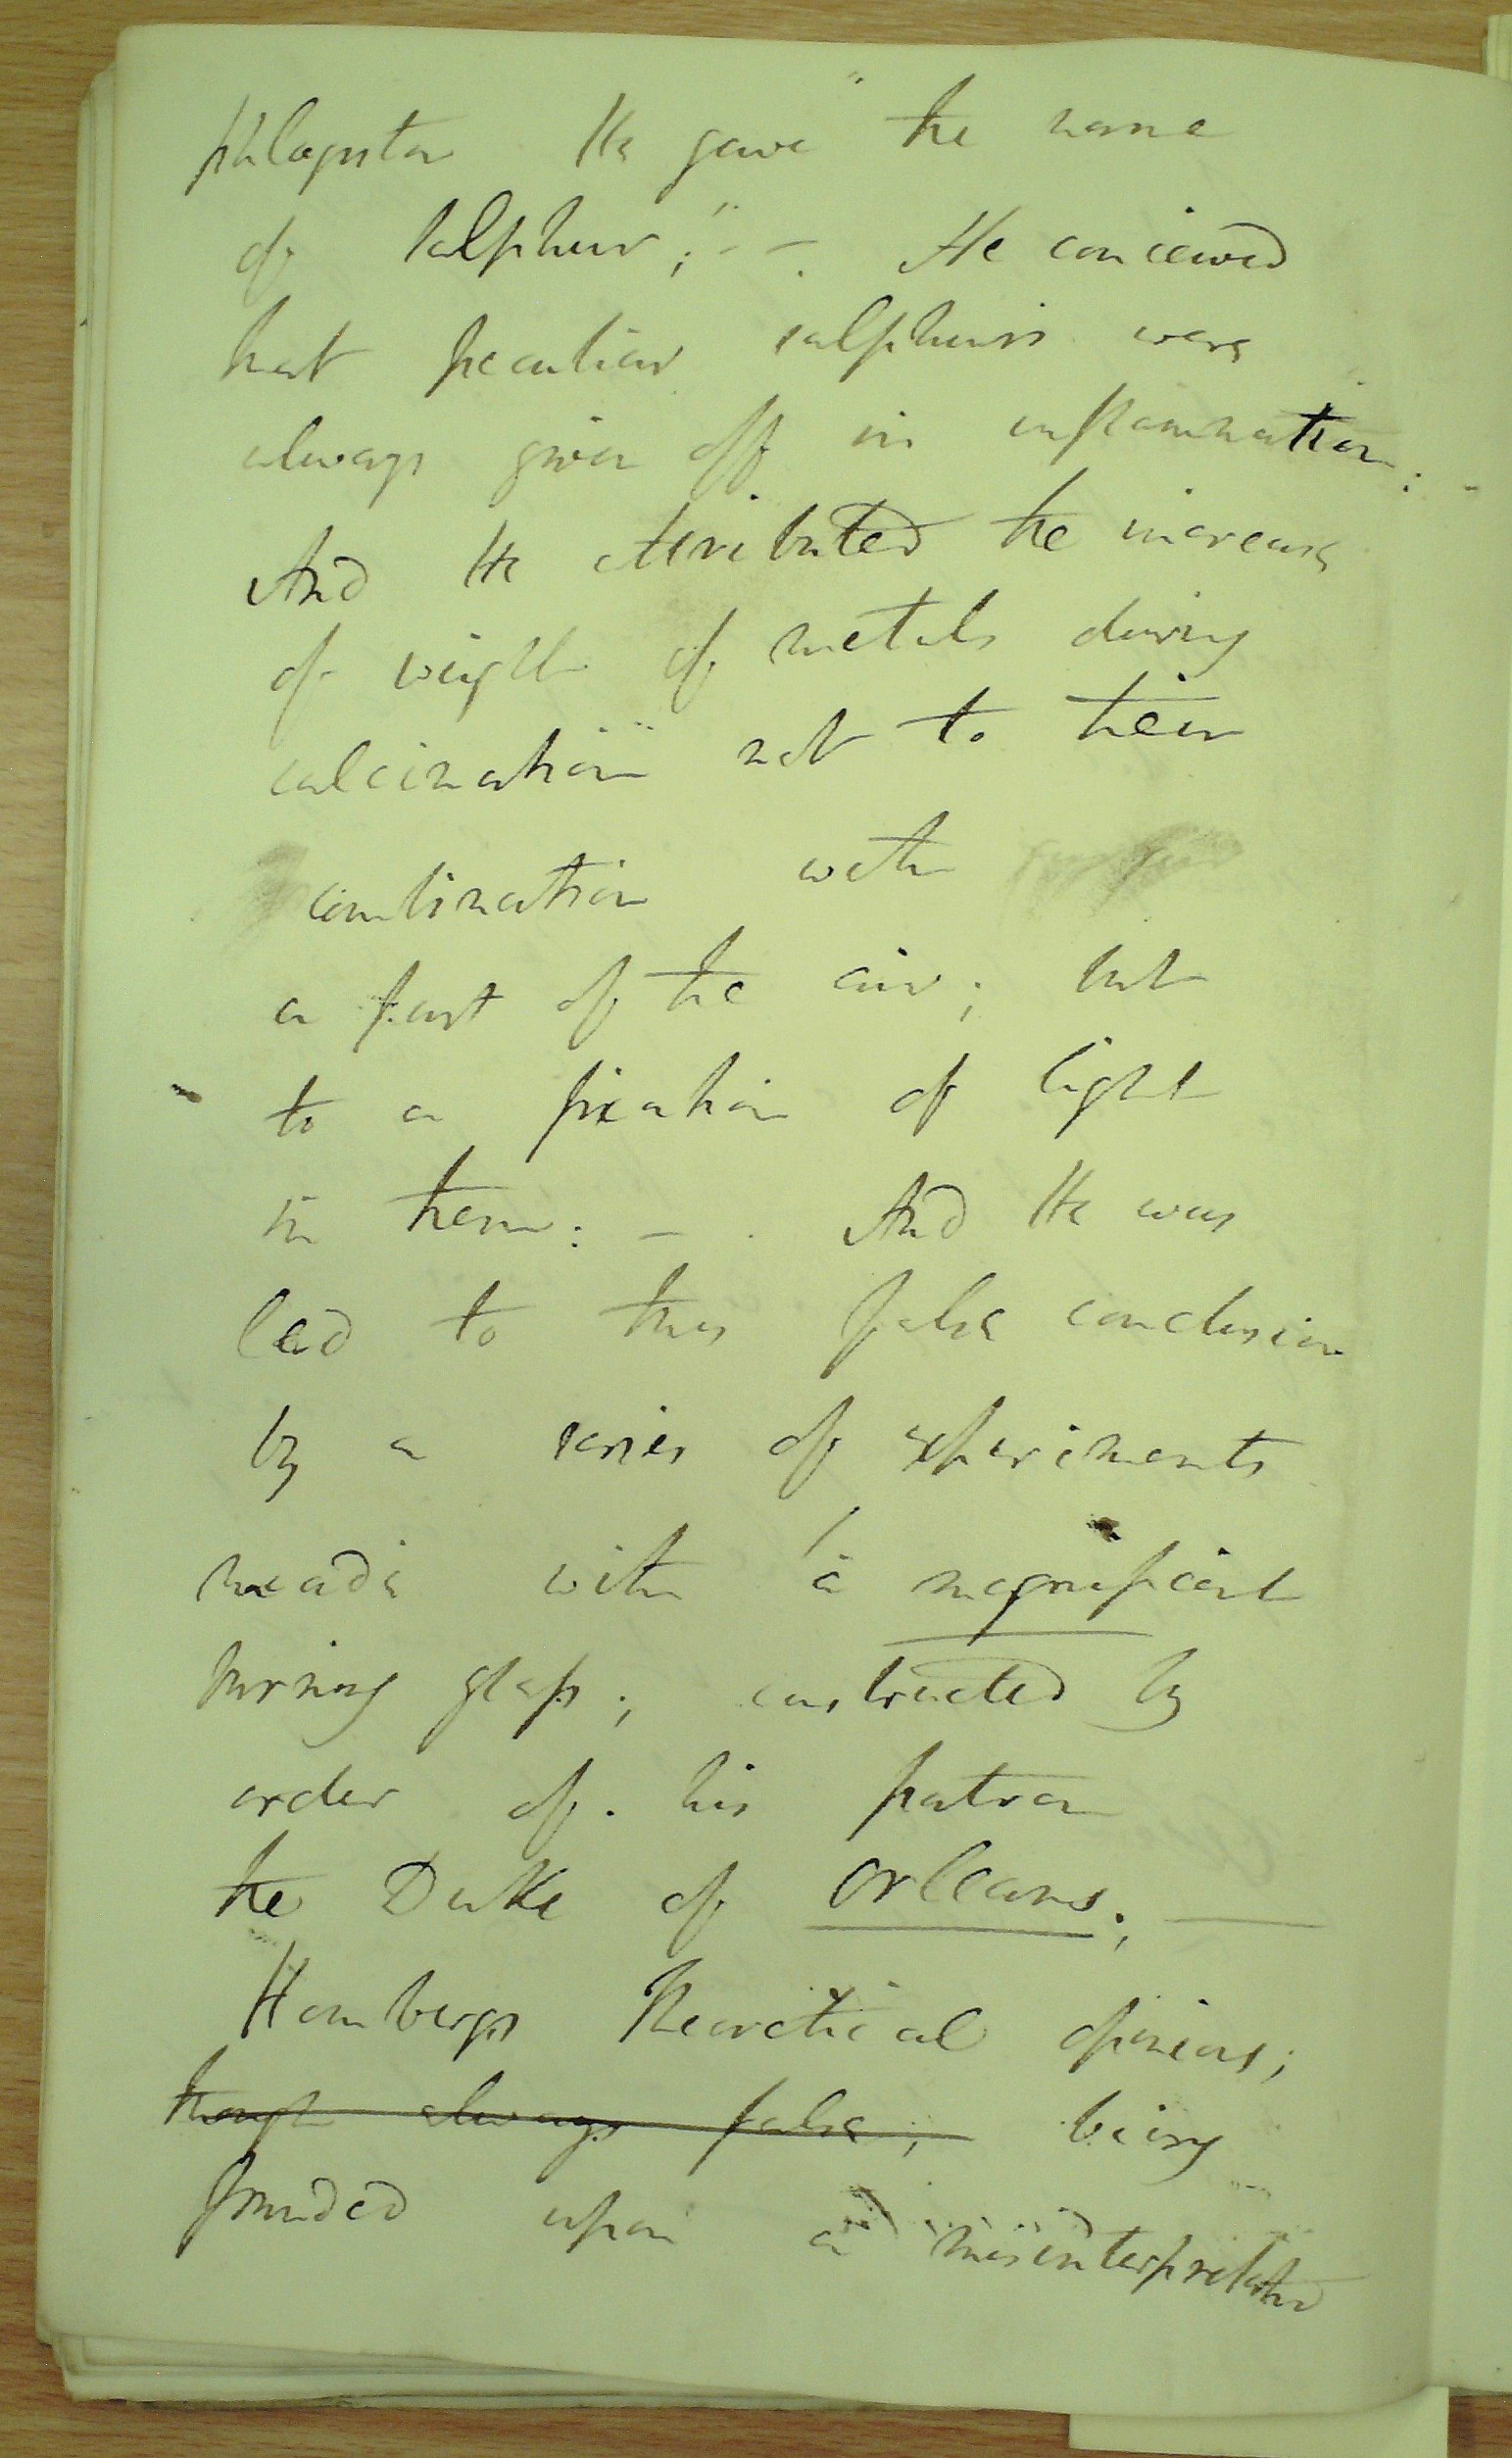 phlogiston He gave the name
of sulphur; - - . He conceived
that peculiar sulphurs were
always given off in inflammation: -
And He attributed the increase
of weight of metals during
calcination not to their
combination with
a part of the air; but
to a fixation of light
in them: - . And He was
led to this false conclusion
by a series of experiments
made with a magnificent
burning glass; constructed by
order of his patron
the Duke of Orleans; —
Hombergs theoretical opinions;
though always false; being
founded upon a misinterpretation